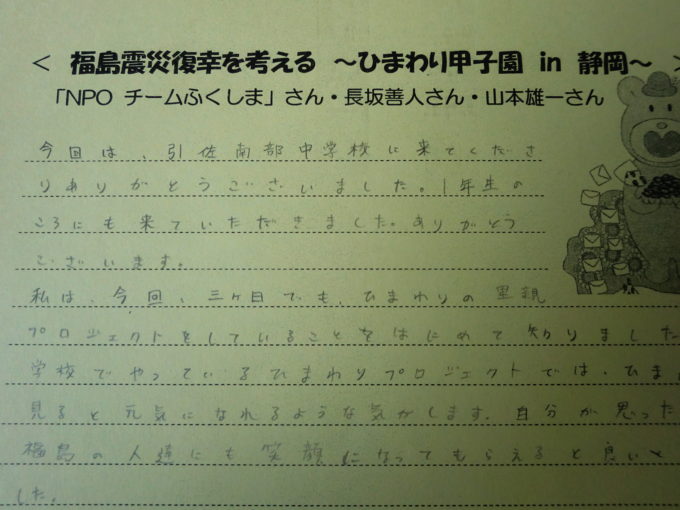 < 福島震災復幸を考える ～ひまわり甲子園 in 静岡～ >
「NPO チームふくしま」さん・長坂善人さん・山本雄一さん
今回は、引佐南部中学校に来てくださ
りありがとうございました。1年生の
ころにも来ていただきました。ありがとう
ございます。
私は、今回、三ヶ日でも、ひまわりの里親
プロジェクトをしていることをはじめて知りました
学校でやっているひまわりプロジェクトでは、ひま
見ると元気になれるような気がします。自分が思った
福島の人達にも笑顔になってもらえると良いと
した。